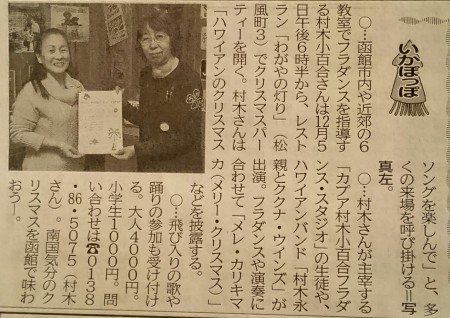 いかぽっぽ
○…函館市内や近郊の6
教室でフラダンスを指導す
る村木小百合さんは12月5
日午後6時半から、レスト
ラン「わがやの灯り」(松
風町3)でクリスマスパー
ティーを開く。村木さんは
「ハワイアンのクリスマス
ソングを楽しんで」と、多
くの来場を呼び掛ける=写
真左。
○…村木さんが主宰する
「カプア村木小百合フラダ
ンス・スタジオ」の生徒や、
ハワイアンバンド「村木永
親とククナ・ウインズ」が
出演。フラダンスや演奏に
合わせて「メレ・カリキマ
カ(メリー・クリスマス)」
などを披露する。
○…飛び入りの歌や
踊りの参加も受け付け
る。大人4000円。
小学生1000円。問
い合わせは☎0138
・86・5075(村木
さん)。南国気分のク
リスマスを函館で味わ
おうー。